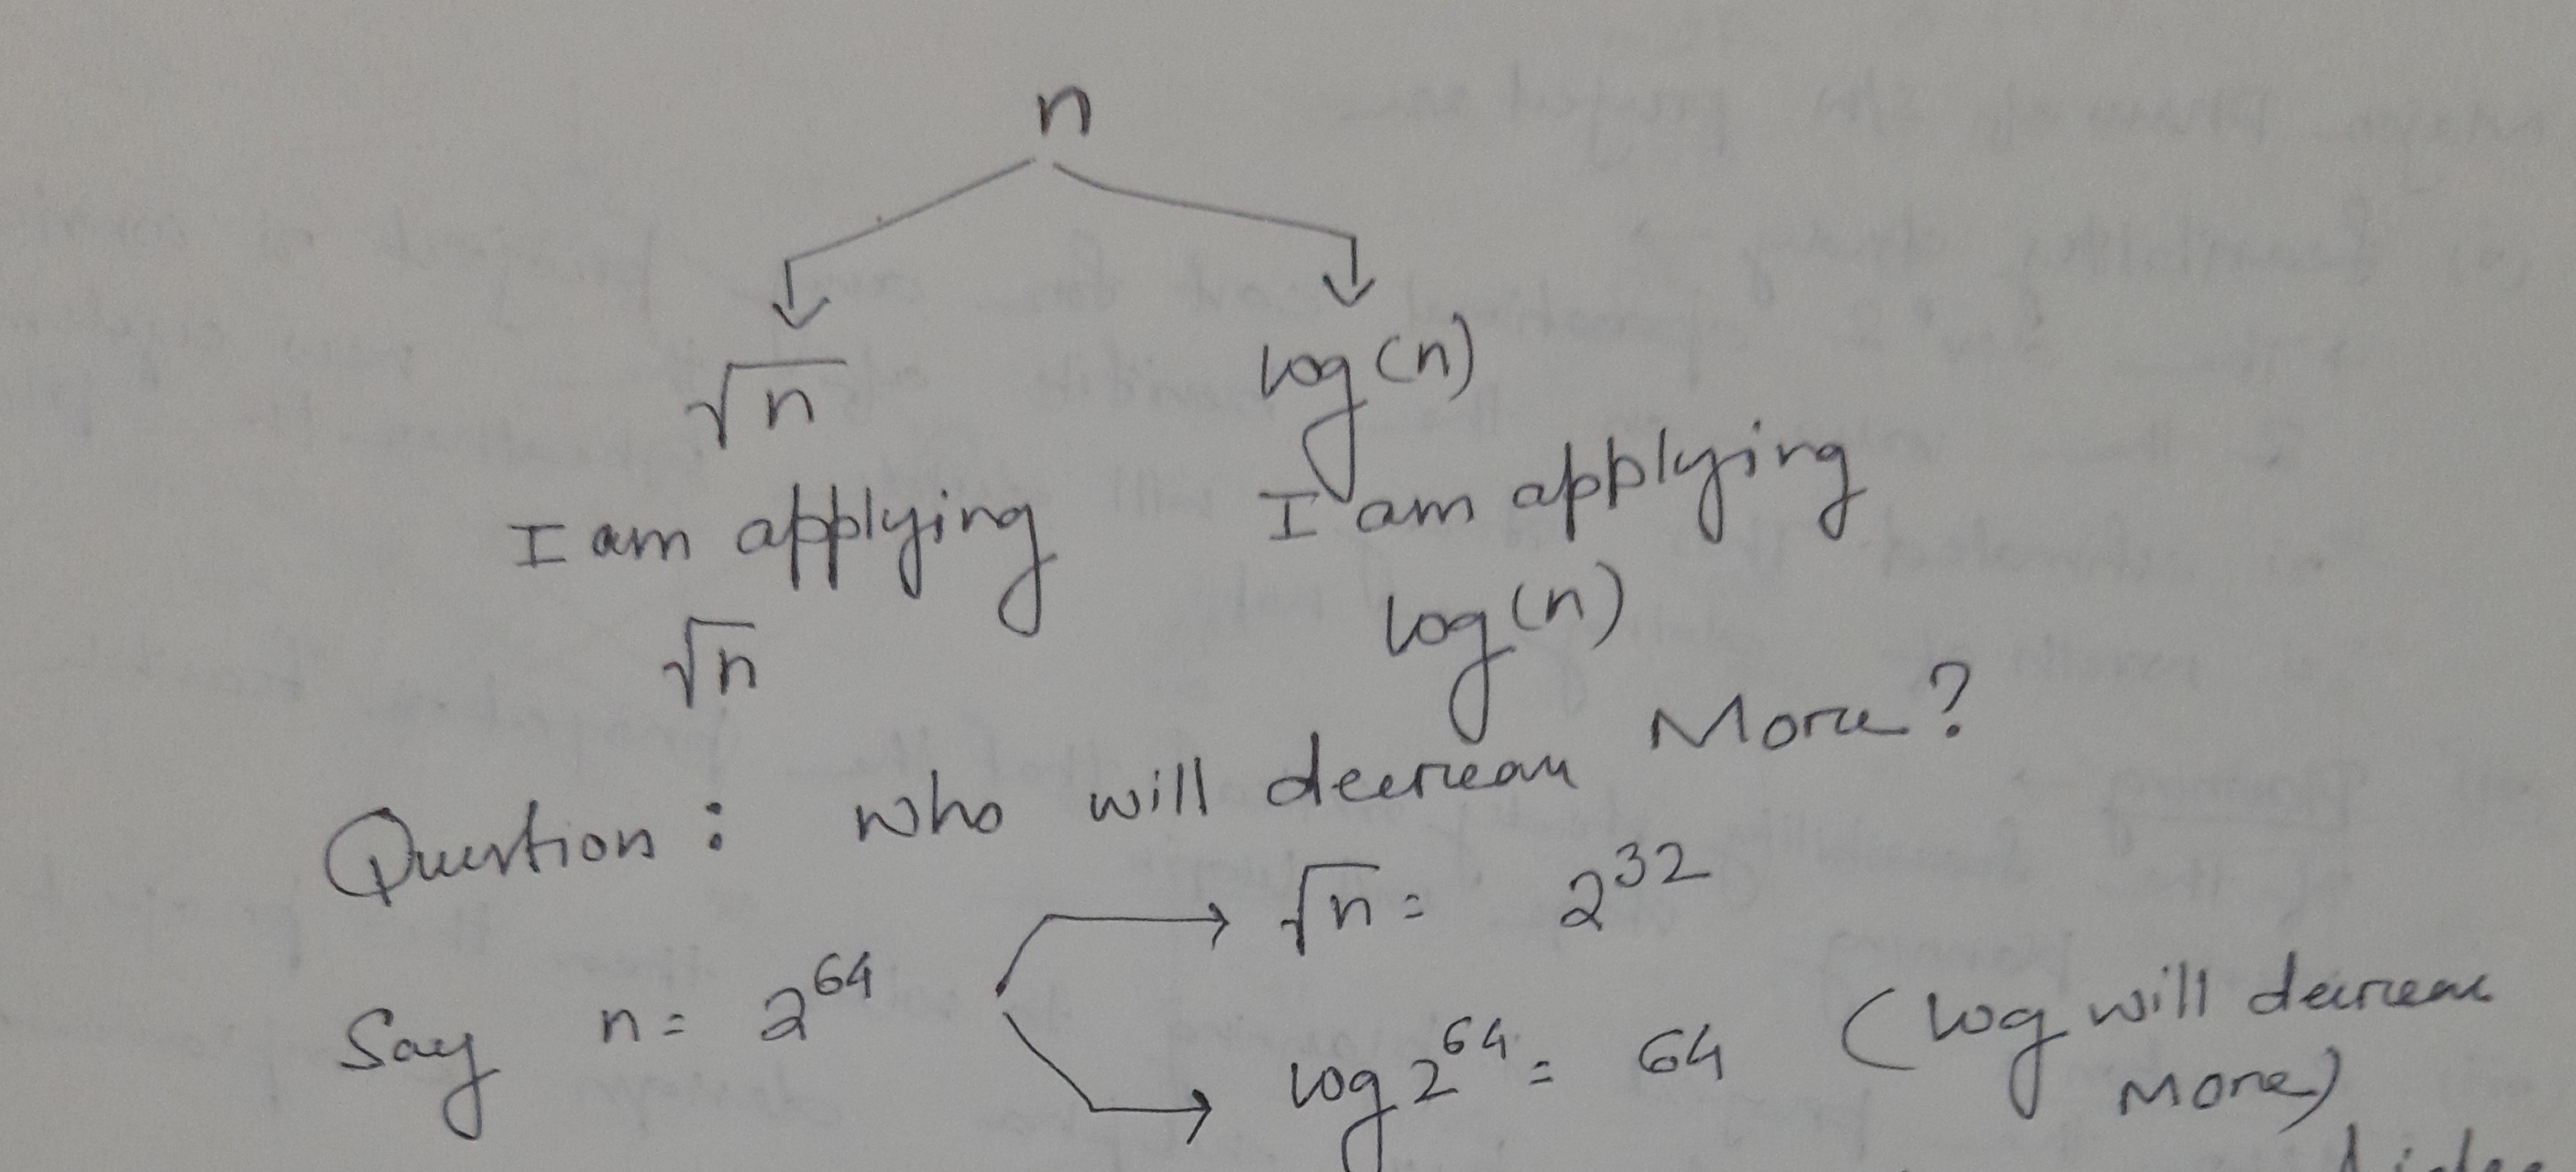 n
√n log(n)
I am applying I am applying
√n log(n)
Question : who will decrease More?
Say n = 2^64 → √n = 2^32
→ log 2^64 = 64 (log will decrease
More)